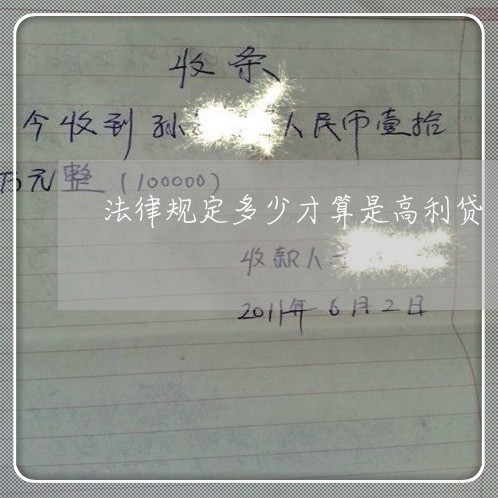 收条
今收到孙 人民币壹拾
万元整（100000）
法律规定多少才算是高利贷
收款人
2011年6月2日